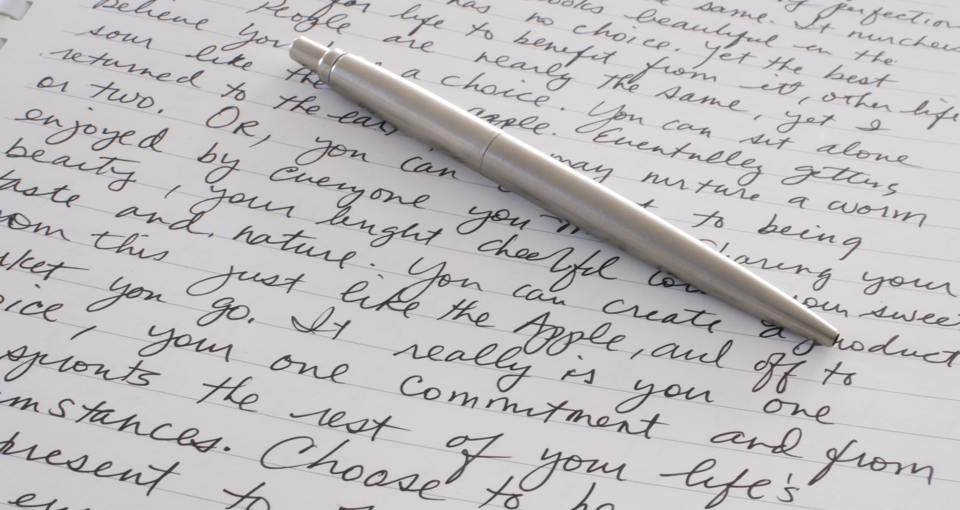 perfection
same. It
books beautiful in the
has no choice, yet the best
for life to benefit from it, other life
People are nearly the same, yet I
Believe you a choice. You can sit alone
sour like the apple. Eventually getting
returned to the may nurture a worm
or two. Or, you can to being
enjoyed by everyone you Sharing your
beauty, your bright cheerful your sweet
taste and nature. You can create a product
from this just like the Apple, and off to
you go. It really is you one
your one commitment and from
sprouts the rest of your life's
Choose to be
present to